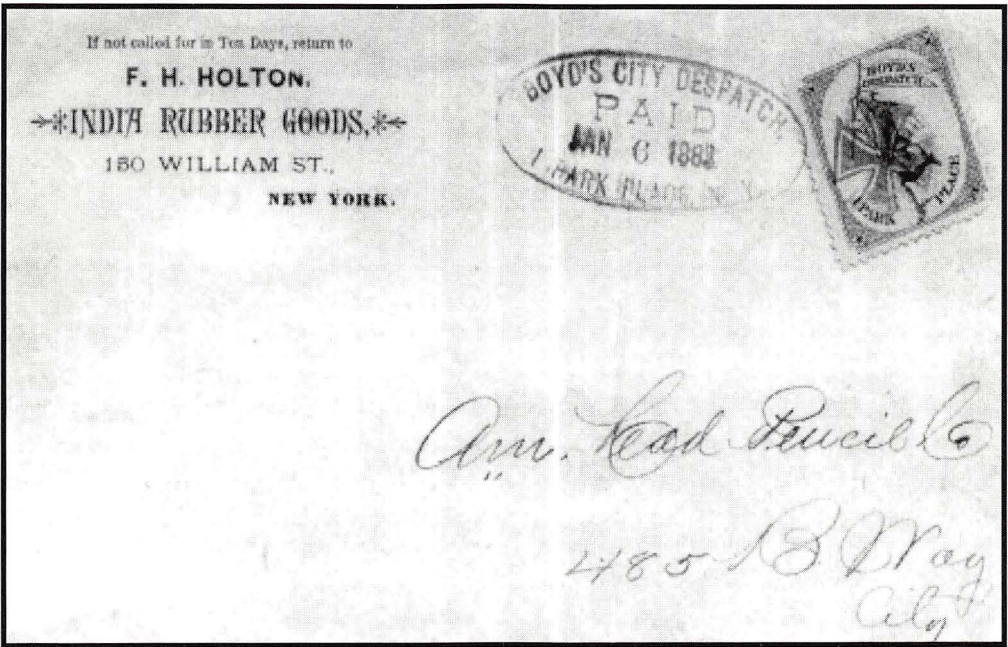 If not called for in Ten Days, return to
F. H. HOLTON.
INDIA RUBBER GOODS,
150 WILLIAM ST.,
NEW YORK.
BOYD'S CITY DESPATCH,
PAID
JAN 6 1883
1 PARK PLACE, N. Y.
BOYD'S
DESPATCH
1 PARK
PLACE
Am. Lead Pencil Co
485 B Way
City